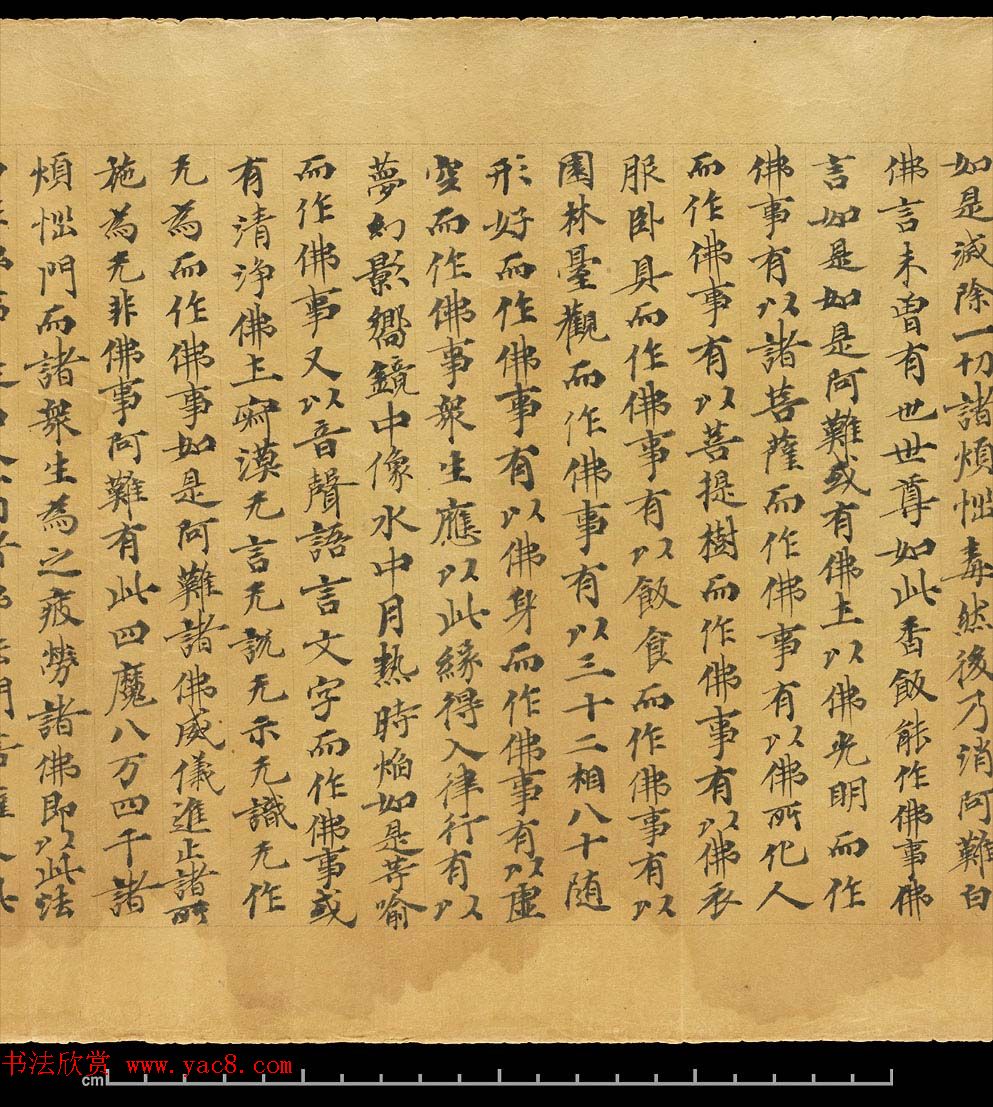 如是滅除一切諸煩惱毒然後乃消阿難白
佛言未曾有世世尊如此香飯能作佛事佛
言如是如是阿難或有佛土以佛光明而作
佛事有以諸菩薩而作佛事有以佛所化人
而作佛事有以菩提樹而作佛事有以佛衣
服卧具而作佛事有以飯食而作佛事有以
園林臺觀而作佛事有以三十二相八十随
形好而作佛事有以佛身而作佛事有以虛
空而作佛事眾生應以此緣得入律行有以
夢幻影嚮鏡中像水中月熱時焰如是等喻
而作佛事又以音聲語言文字而作佛事或
有清浄佛土寂漠无言无說无示无識无作
无為而作佛事如是阿難諸佛威儀進止諸所
施為无非佛事阿難有此四魔八万四千諸
煩惱門而諸眾生為之疲勞諸佛即以此法
书法欣赏 www.yac8.com
cm